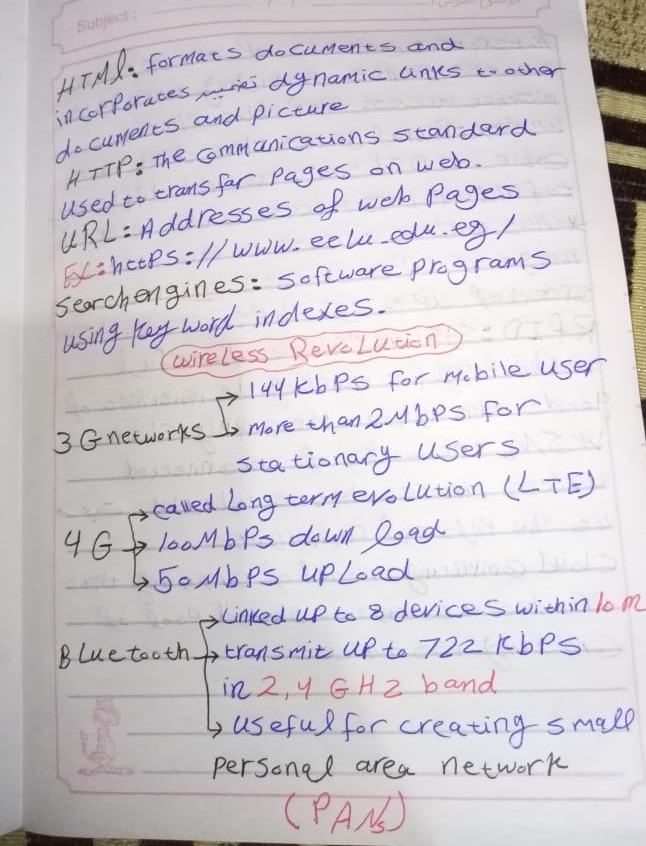 Subject :
HTML: formats documents and
incorporates dynamic links to other
documents and picture
HTTP: The Communications standard
used to transfar pages on web.
URL: Addresses of web pages
Ex: https://www.eelu.edu.eg/
Search engines: software programs
using key word indexes.
Wireless Revolution
144 kbps for mobile user
3 G networks more than 2Mbps for
stationary users
called Long term evolution (LTE)
4 G 100Mbps down load
50Mbps upLoad
Linked up to 8 devices within 10 m
Bluetooth transmit up to 722 kbps
in 2,4 GHz band
useful for creating small
personal area network
(PANs)